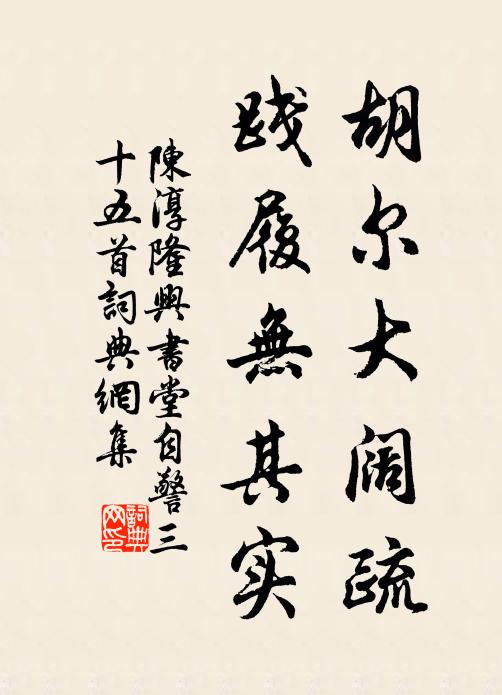 胡尔大阔疏
践履無其实
陳淳隆興書堂自警三
十五首詞典網集
詞典
网印